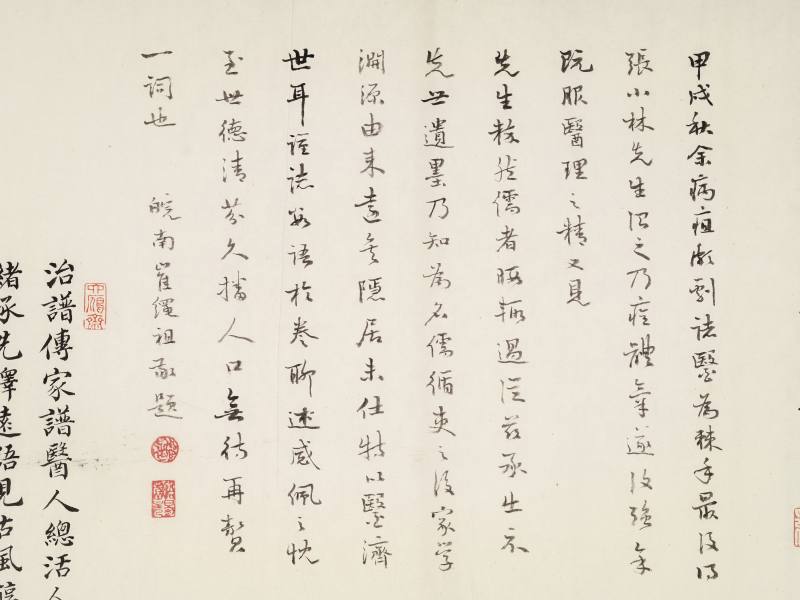 甲戌秋余病疽頗劇諸醫為棘手最後得
張小林先生治之乃痊體氣遂復強余
既服醫理之精又見
先生粹然儒者暇輒過從茲承出示
先世遺墨乃知為名儒循吏之後家学
淵源由来遠矣隱居未仕特以醫濟
世耳謹誌數語於卷聊述感佩之忱
至世德清芬久播人口無待再贅
一詞也
皖南崔繩祖敬題
治譜傳家譜醫人總活人
緒承先澤遠語見古風